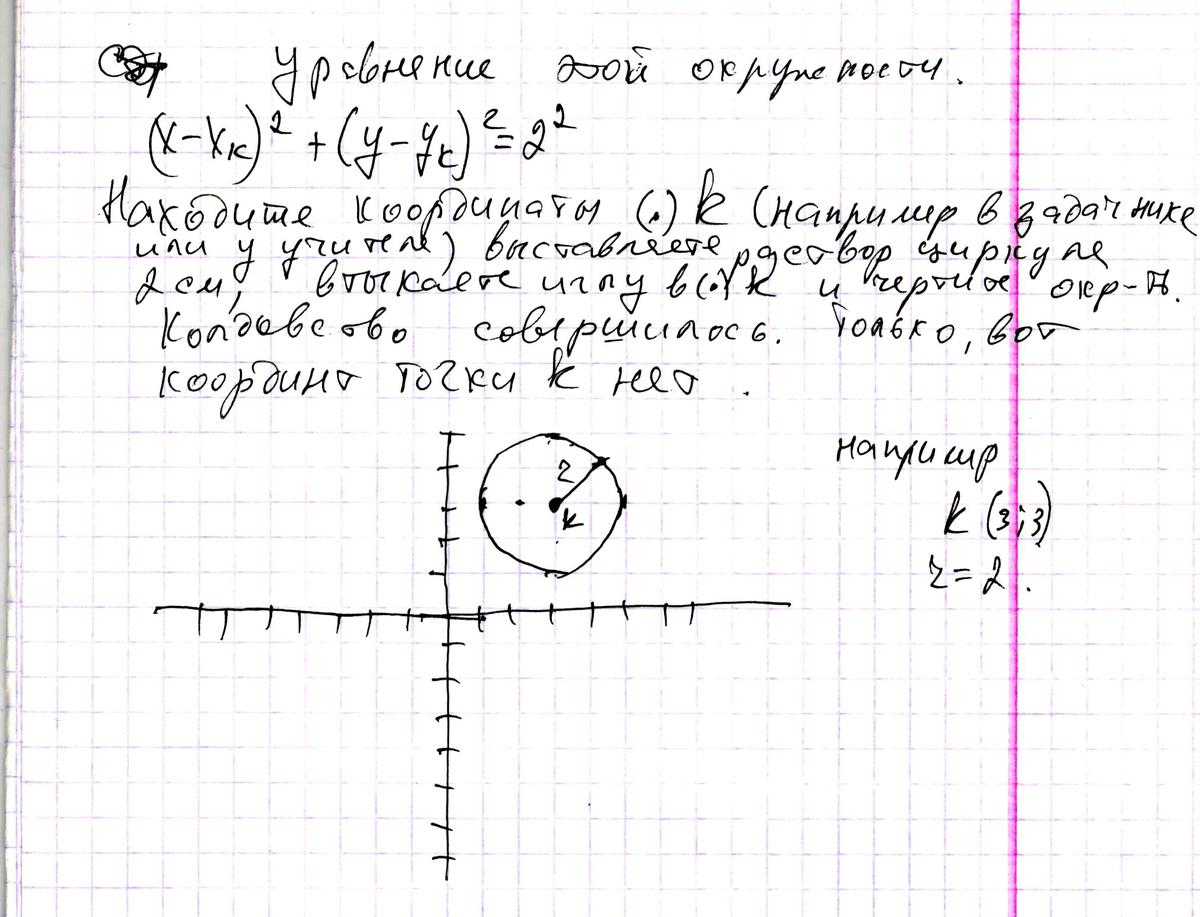 Уравнение этой окружности.
(x-xₖ)² + (y-yₖ)² = 2²
Находите координаты (.) k (например в задачнике
или у учителя) выставляете раствор циркуля
2 см, втыкаете иглу в (.) k и чертите окр-ть.
Колдовство совершилось. Только, вот
координт точки k нет.
например
2
k
k (3;3)
r = 2.